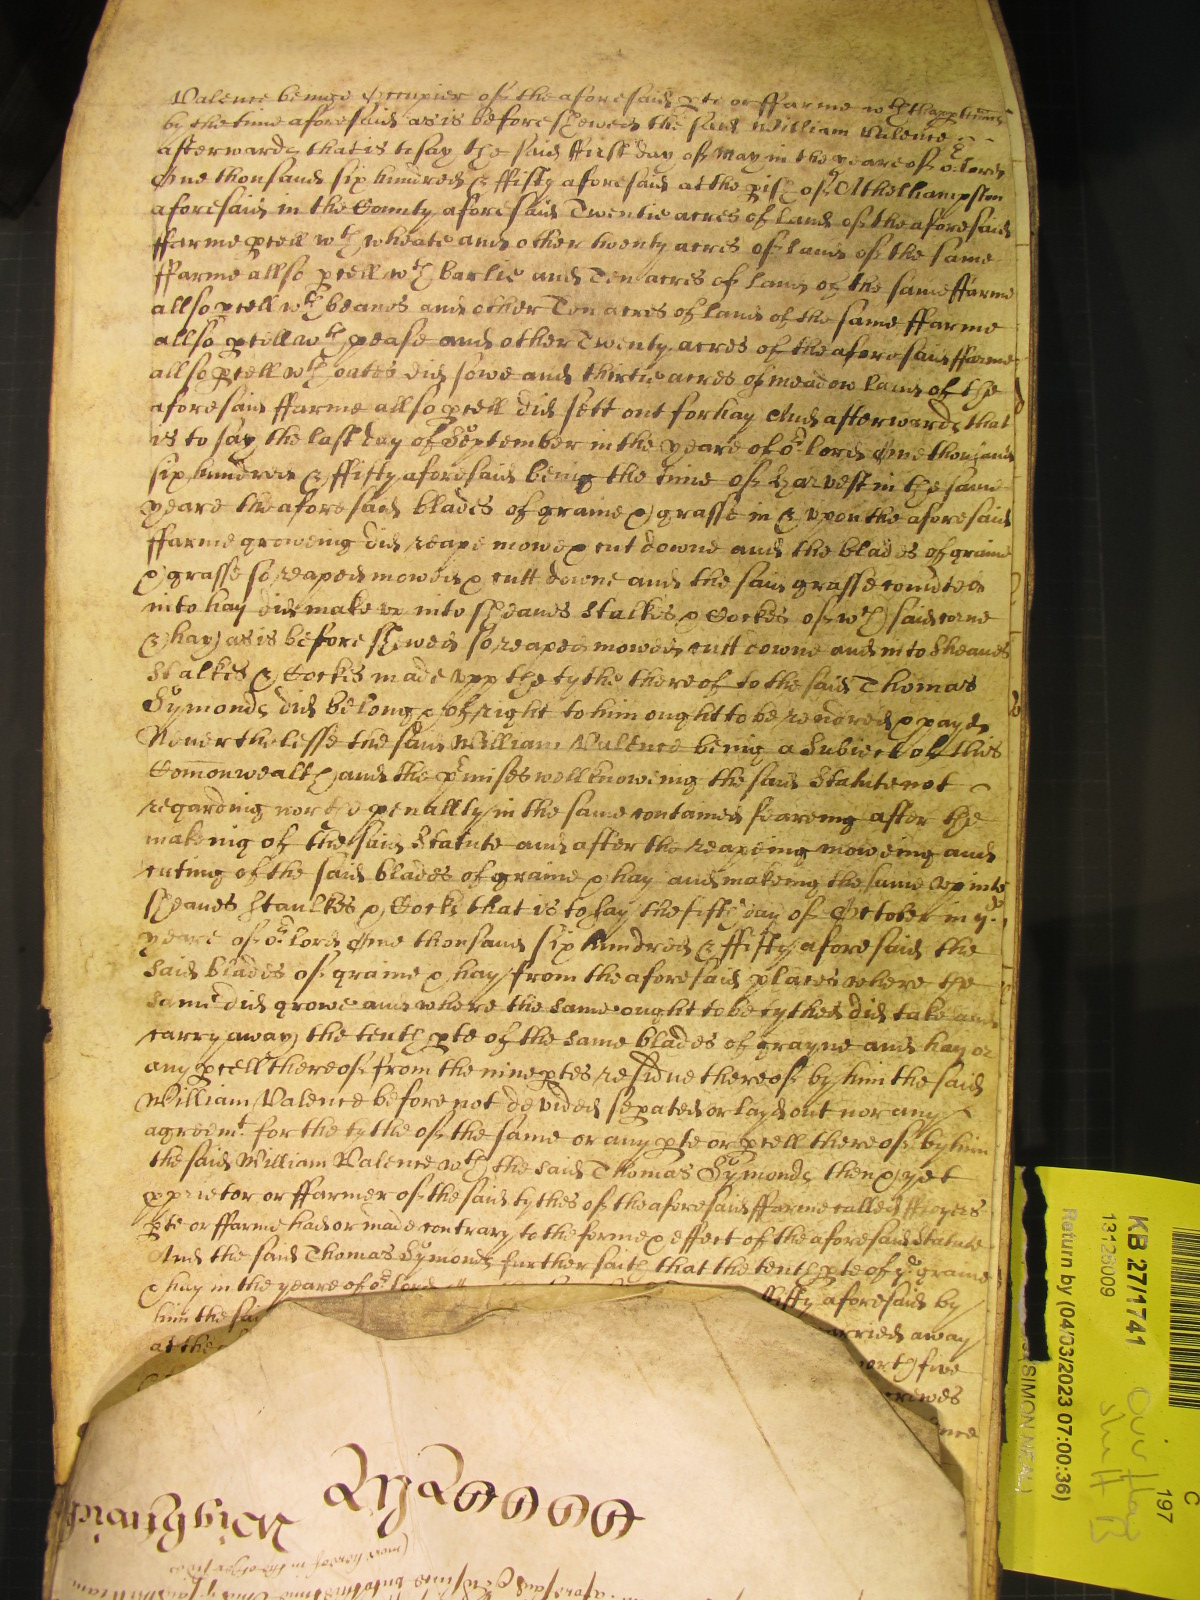 Valence beinge Occupier of the aforesaid pte or fferme wth thapptennces
by the time aforesaid as is before shewed the said William Valence
afterwards that is to say the said ffirst day of May in the yeare of or Lord
One thousand six hundred & ffifty aforesaid at the pish of Athelliampston
aforesaid in the County aforesaid Twentie acres of land of the aforesaid
ffarme pcell wth wheate and other twenty acres of land of the same
ffarme allso pcell wth barlie and Ten acres of land of the same ffarme
allso pcell wth beanes and other Ten acres of land of the same ffarme
allso pcell wth pease and other Twenty acres of the aforesaid ffarme
allso pcell wth oates did sowe and thirtie acres of meadow land of the
aforesaid ffarme allso pcell did sett out for hay And afterwards that
is to say the last day of September in the yeare of or Lord One thousand
six hundred & ffifty aforesaid being the time of harvest in the same
yeare the aforesaid blades of graine & grasse in & upon the aforesaid
ffarme groweing did reape mowe & cut downe and the blades of graine
& grasse so reaped mowed & cutt downe and the said grasse convted
into hay did make up into Sheaves Stalkes & Cockes of wch said corne
& hay as is before shewed so reaped mowed cutt downe and into Sheaves
Stalkes & Cockes made upp the tythe thereof to the said Thomas
Symonds did belong & of right to him ought to be rendred & payd
Neverthelesse the said William Valence being a Subiect of this
Comonwealth and the pmises well knoweing the said Statute not
regarding nor the penallty in the same contained feareing after the
makeing of the said Statute and after the reapeing moweing and
cuting of the said blades of graine & hay and makeing the same up into
Sheaves Staulkes & Cocks that is to say the fifth day of October in ye
yeare of or Lord One thousand six hundred & ffifty aforesaid the
said blades of graine & hay from the aforesaid places where the
same did growe and where the same ought to be tythed did take and
carry away the tenth pte of the same blades of grayne and hay or
any pcell thereof from the nine ptes residue thereof by him the said
William Valence before not devided sepated or layd out nor any
agreemt for the tythe of the same or any pte or pcell thereof by him
the said William Valence wth the said Thomas Symonds then & yet
pprietor or ffarmer of the said tythes of the aforesaid ffarme called
pte or ffarme had or made contrary to the forme & effect of the aforesaid Statute
And the said Thomas Symonds further saith that the tenth pte of ye graine
& hay in the yeare of or Lord ffifty aforesaid by
him the said arried away
at the orth five
rewes
KB 27/1741
13128009
Return by (04/03/2023 07:00:36)
(SIMON NEAL)
C
197